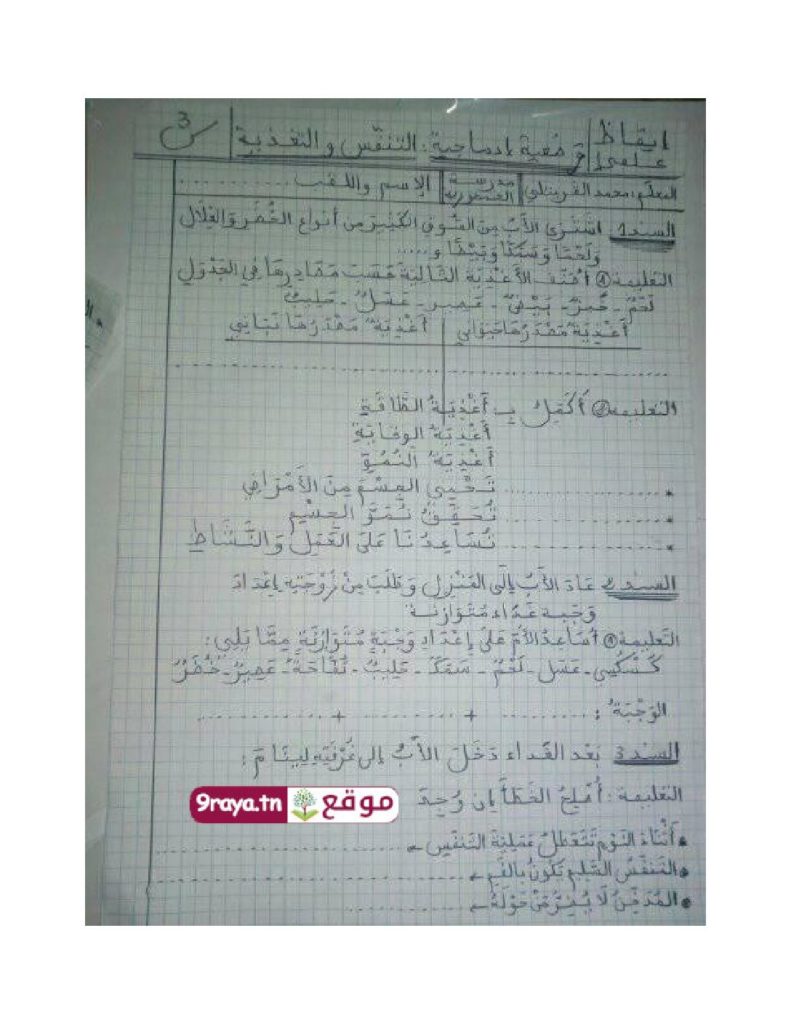 ايقاظ علمي | وضعية إدماجية: التنفس والتغذية | س 3
المعلم: محمد القريتلي | مدرسة المنصورية | الإسم واللقب ..........
السند1 اشْتَرَى الأَبُ مِنَ السُّوقِ الكَثِيرَ مِن أنواع الخُضَرِ وَالغِلَالِ
وَلَحْمًا وَسَمَكًا وَبَيْضًا و.....
التعليمة ① أُصَنِّفُ الأَغْذِيَةَ التَّالِيَةَ حَسَبَ مَصَادِرِهَا فِي الجَدْوَلِ
لَحْمٌ - خُبْزٌ - بَيْضٌ - عَصِير - عَسَلٌ - حَلِيبٌ
أَغْذِيَةٌ مَصْدَرُهَا حيواني | أَغْذِيَةٌ مَصْدَرُهَا نَبَاتِي
التعليمة ② أُكَمِّلُ بِـ أَغْذِيَةُ الطَّاقَةِ
أَغْذِيَةُ الوِقَايَةِ
أَغْذِيَةُ النُّمُوِّ
* .......... تَحْمِي الجِسْمَ مِنَ الأَمْرَاضِ
* .......... تُحَقِّقُ نُمُوَّ الجِسْمِ
* .......... تُسَاعِدُنَا عَلَى العَمَلِ وَالنَّشَاطِ
السند 2 عَادَ الأَبُ إِلَى المَنْزِلِ وَطَلَبَ مِنْ زَوْجَتِهِ إِعْدَادَ
وَجْبَة غَدَاء مُتَوَازِنَة
التعليمة ① أُسَاعِدُ الأُمَّ عَلَى إِعْدَادِ وَجْبَةٍ مُتَوَازِنَةٍ مِمَّا يَلِي:
كُسْكُسِي - عَسَل - لَحْمٌ - سَمَكٌ - حَلِيبٌ - تُفَّاحَةٌ - عَصِيرٌ - خُضَرٌ
الوَجْبَةُ: .......... + .......... + ..........
السند 3 بَعْدَ الغَدَاء دَخَلَ الأَبُ إلى غُرْفَتِهِ لِيَنَامَ:
التعليمة: أُصْلِحُ الخَطَأَ إِن وُجِدَ
موقع 9raya.tn
* أَثْنَاءَ النَّوْمِ تَتَعَطَّلُ عَمَلِيَّةُ التَّنَفُّسِ ← ..........
* التَّنَفُّسُ السَّلِيم يَكُونُ بِالفَمِ ← ..........
* المُدَخِّنُ لَا يُضِرُّ مَنْ حَوْلَهُ ← ..........